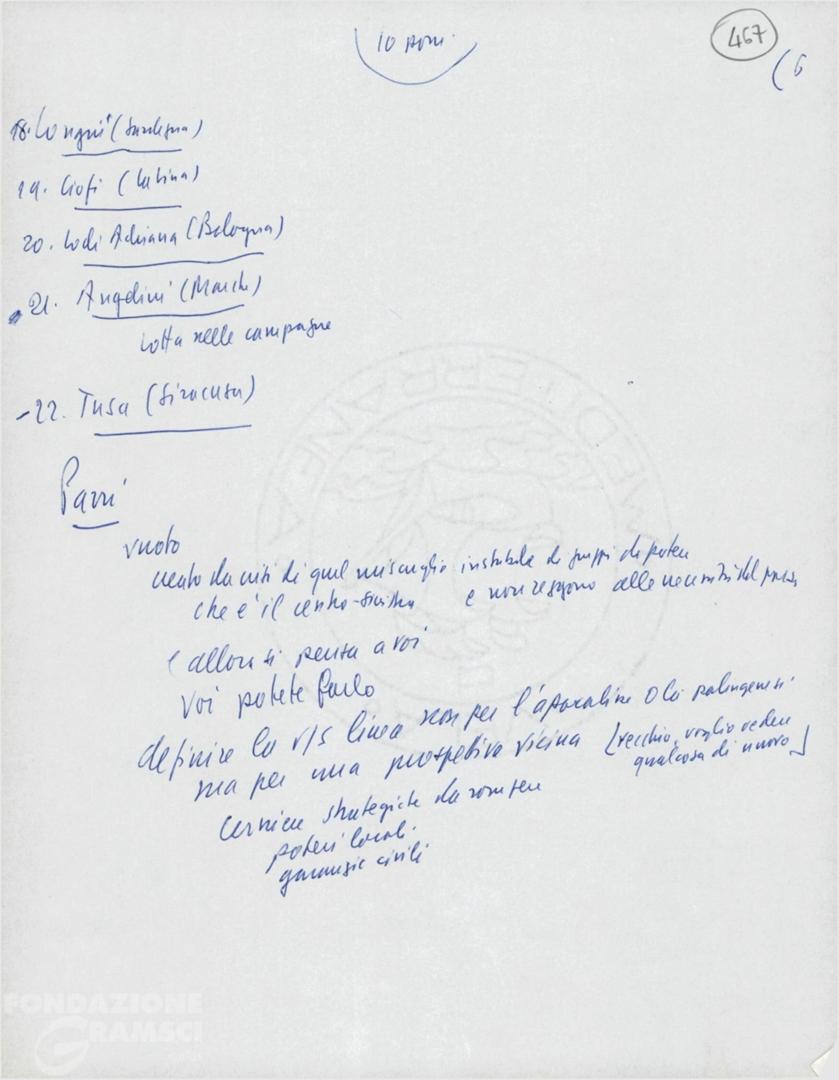 10 pom.
467
(6
18. Longui (Sardegna)
19. Ciofi (Latina)
20. Lodi Adriana (Bologna)
21. Angelini (Marche)
lotta nelle campagne
-22. Tusa (Siracusa)
Parri
vuoto
creato da crisi di quel miscuglio instabile di gruppi di potere
che è il centro-sinistra e non reggono alle necessità del paese
e allora si pensa a voi
voi potete farlo
definire la v/s linea non per l'apocalisse o la palingenesi
ma per una prospettiva vicina [vecchio, voglio vedere
qualcosa di nuovo]
cerniere strategiche da rompere
poteri locali
garanzie civili
MEDITERRANEA
FONDAZIONE
GRAMSCI